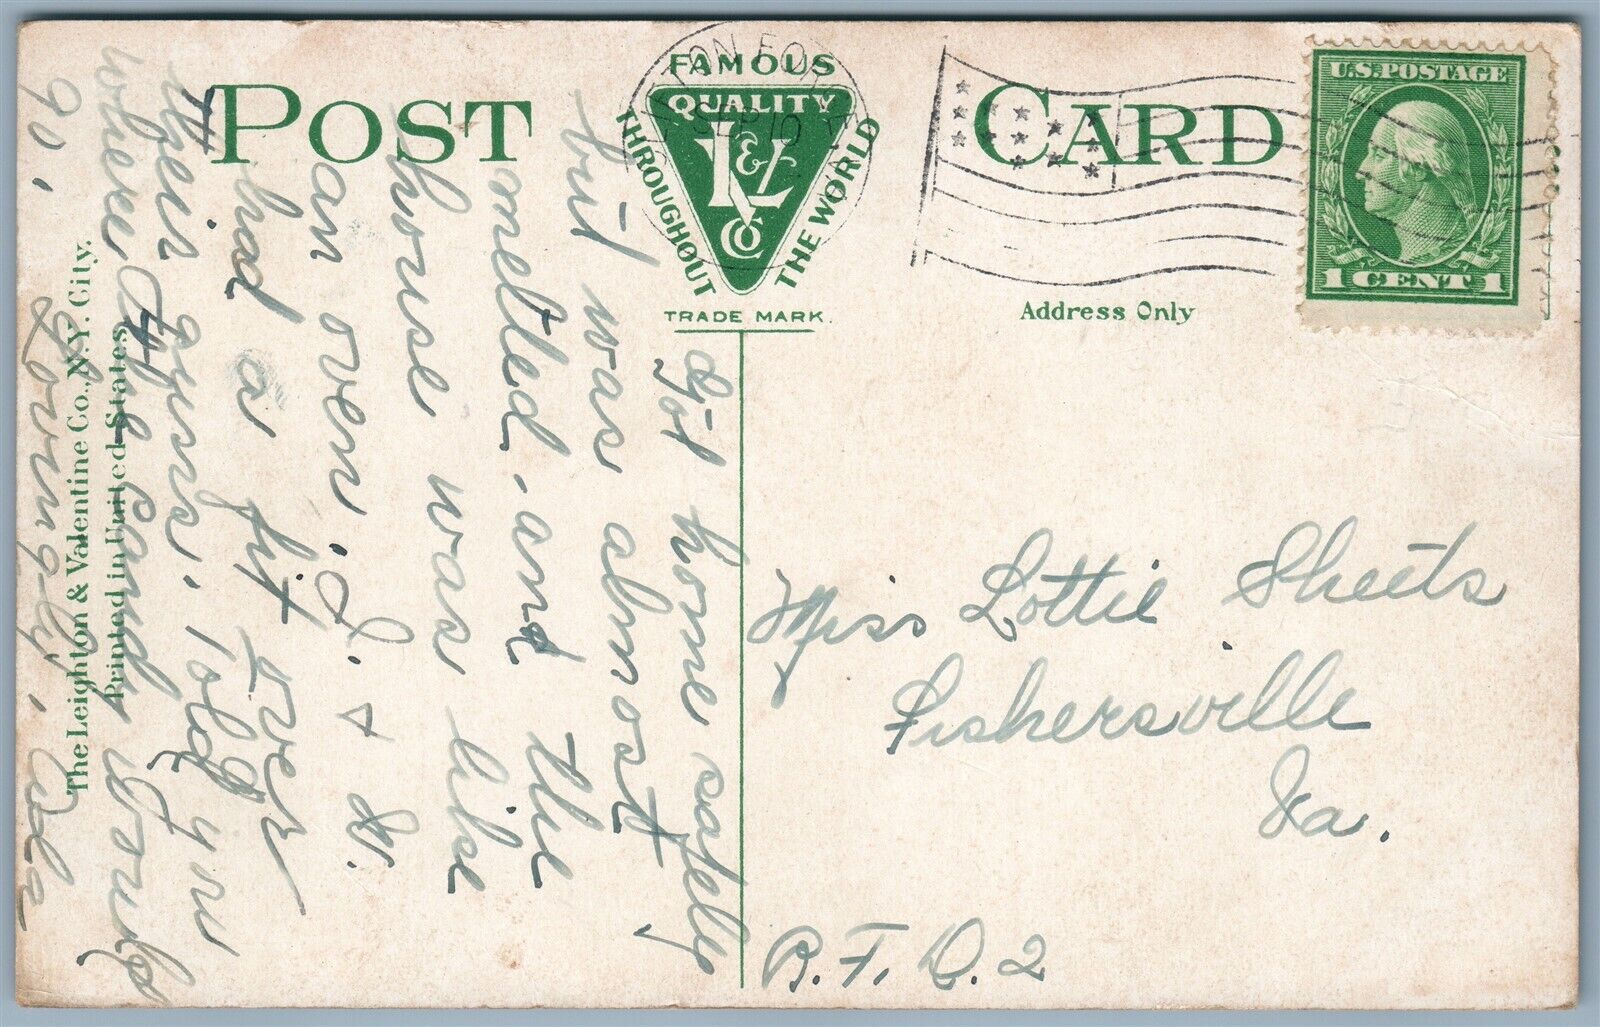 POST CARD
FAMOUS
QUALITY
THROUGHOUT
THE WORLD
L & V
Co
TRADE MARK.
SEP 10
U.S. POSTAGE
1 CENT 1
Address Only
Got home safely
but was almost
melted. and the
house was like
an oven. I. & W.
had a fit over
their guns. Told you
where the Candy would
go. Lovingly.
Miss Lottie Sheets
Fishersville
Va.
R.F.D. 2
The Leighton & Valentine Co., N.Y. City.
Printed in United States.